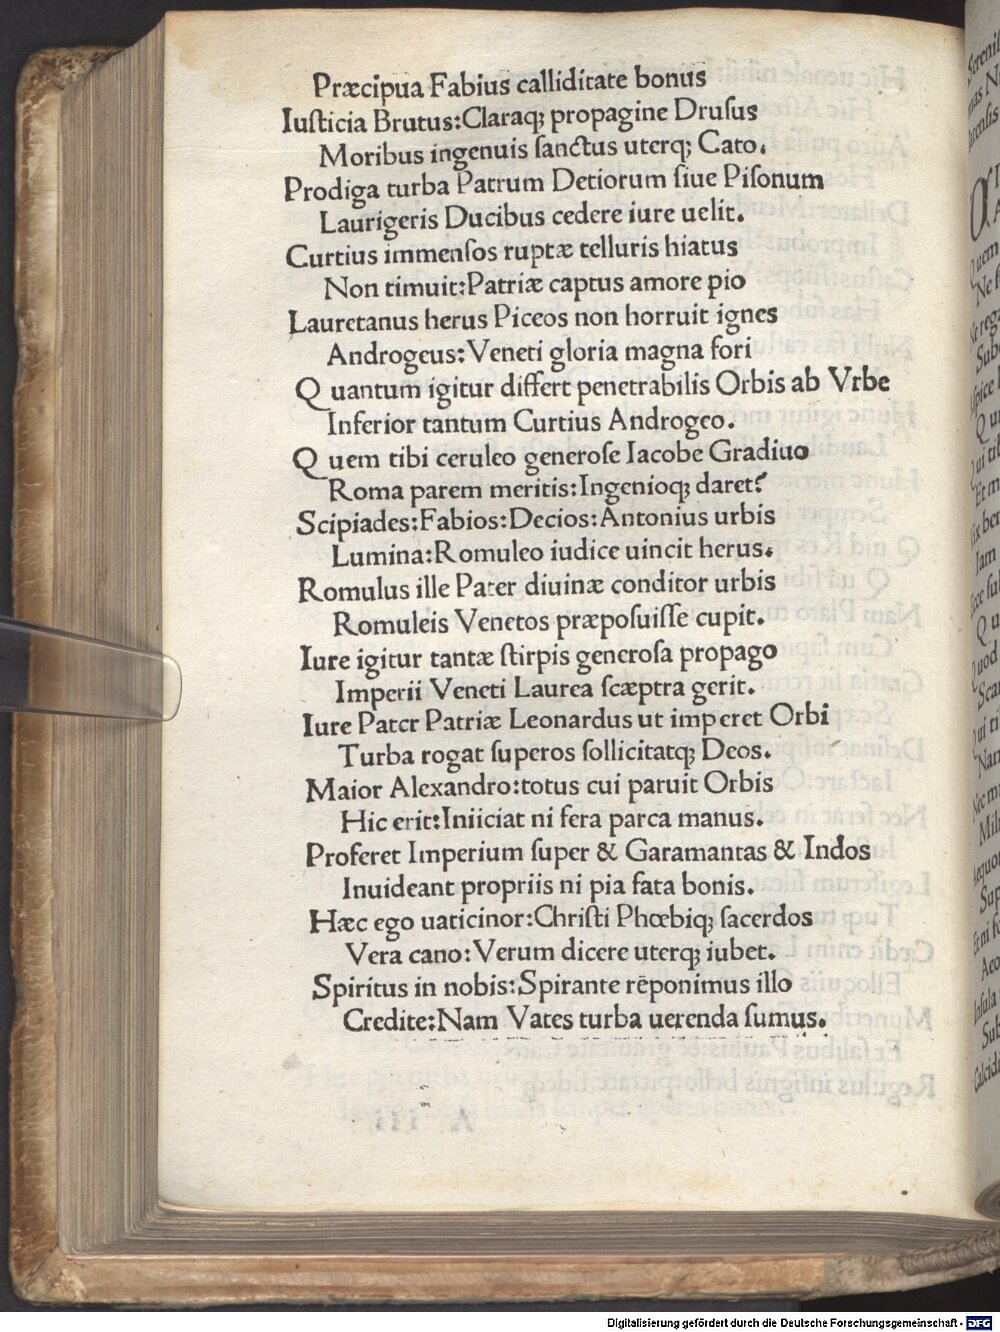 Præcipua Fabius calliditate bonus
Iuſticia Brutus:Claraqꝫ propagine Druſus
Moribus ingenuis ſanctus uterqꝫ Cato.
Prodiga turba Patrum Detiorum ſiue Piſonum
Laurigeris Ducibus cedere iure uelit.
Curtius immenſos ruptæ telluris hiatus
Non timuit:Patriæ captus amore pio
Lauretanus herus Piceos non horruit ignes
Androgeus:Veneti gloria magna fori
Quantum igitur differt penetrabilis Orbis ab Vrbe
Inferior tantum Curtius Androgeo.
Quem tibi ceruleo generoſe Iacobe Gradiuo
Roma parem meritis:Ingenioqꝫ daret?
Scipiades:Fabios:Decios:Antonius urbis
Lumina:Romuleo iudice uincit herus.
Romulus ille Pater diuinæ conditor urbis
Romuleis Venetos præpoſuiſſe cupit.
Iure igitur tantæ ſtirpis generoſa propago
Imperii Veneti Laurea ſcæptra gerit.
Iure Pater Patriæ Leonardus ut imperet Orbi
Turba rogat ſuperos ſollicitatqꝫ Deos.
Maior Alexandro:totus cui paruit Orbis
Hic erit:Iniiciat ni fera parca manus.
Proferet Imperium ſuper & Garamantas & Indos
Inuideant propriis ni pia fata bonis.
Hæc ego uaticinor:Chriſti Phœbiqꝫ ſacerdos
Vera cano:Verum dicere uterqꝫ iubet.
Spiritus in nobis:Spirante rēponimus illo
Credite:Nam Vates turba uerenda ſumus.
Digitalisierung gefördert durch die Deutsche Forschungsgemeinschaft - DFG